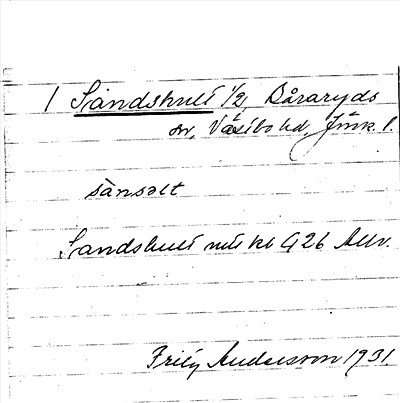 1 Sandshult 1/2, Båraryds
sn, Västbo hd, Jönk. l.
sànsəlt
Sandshult mtl kb G 26 Allv.
Frily Andersson 1931.